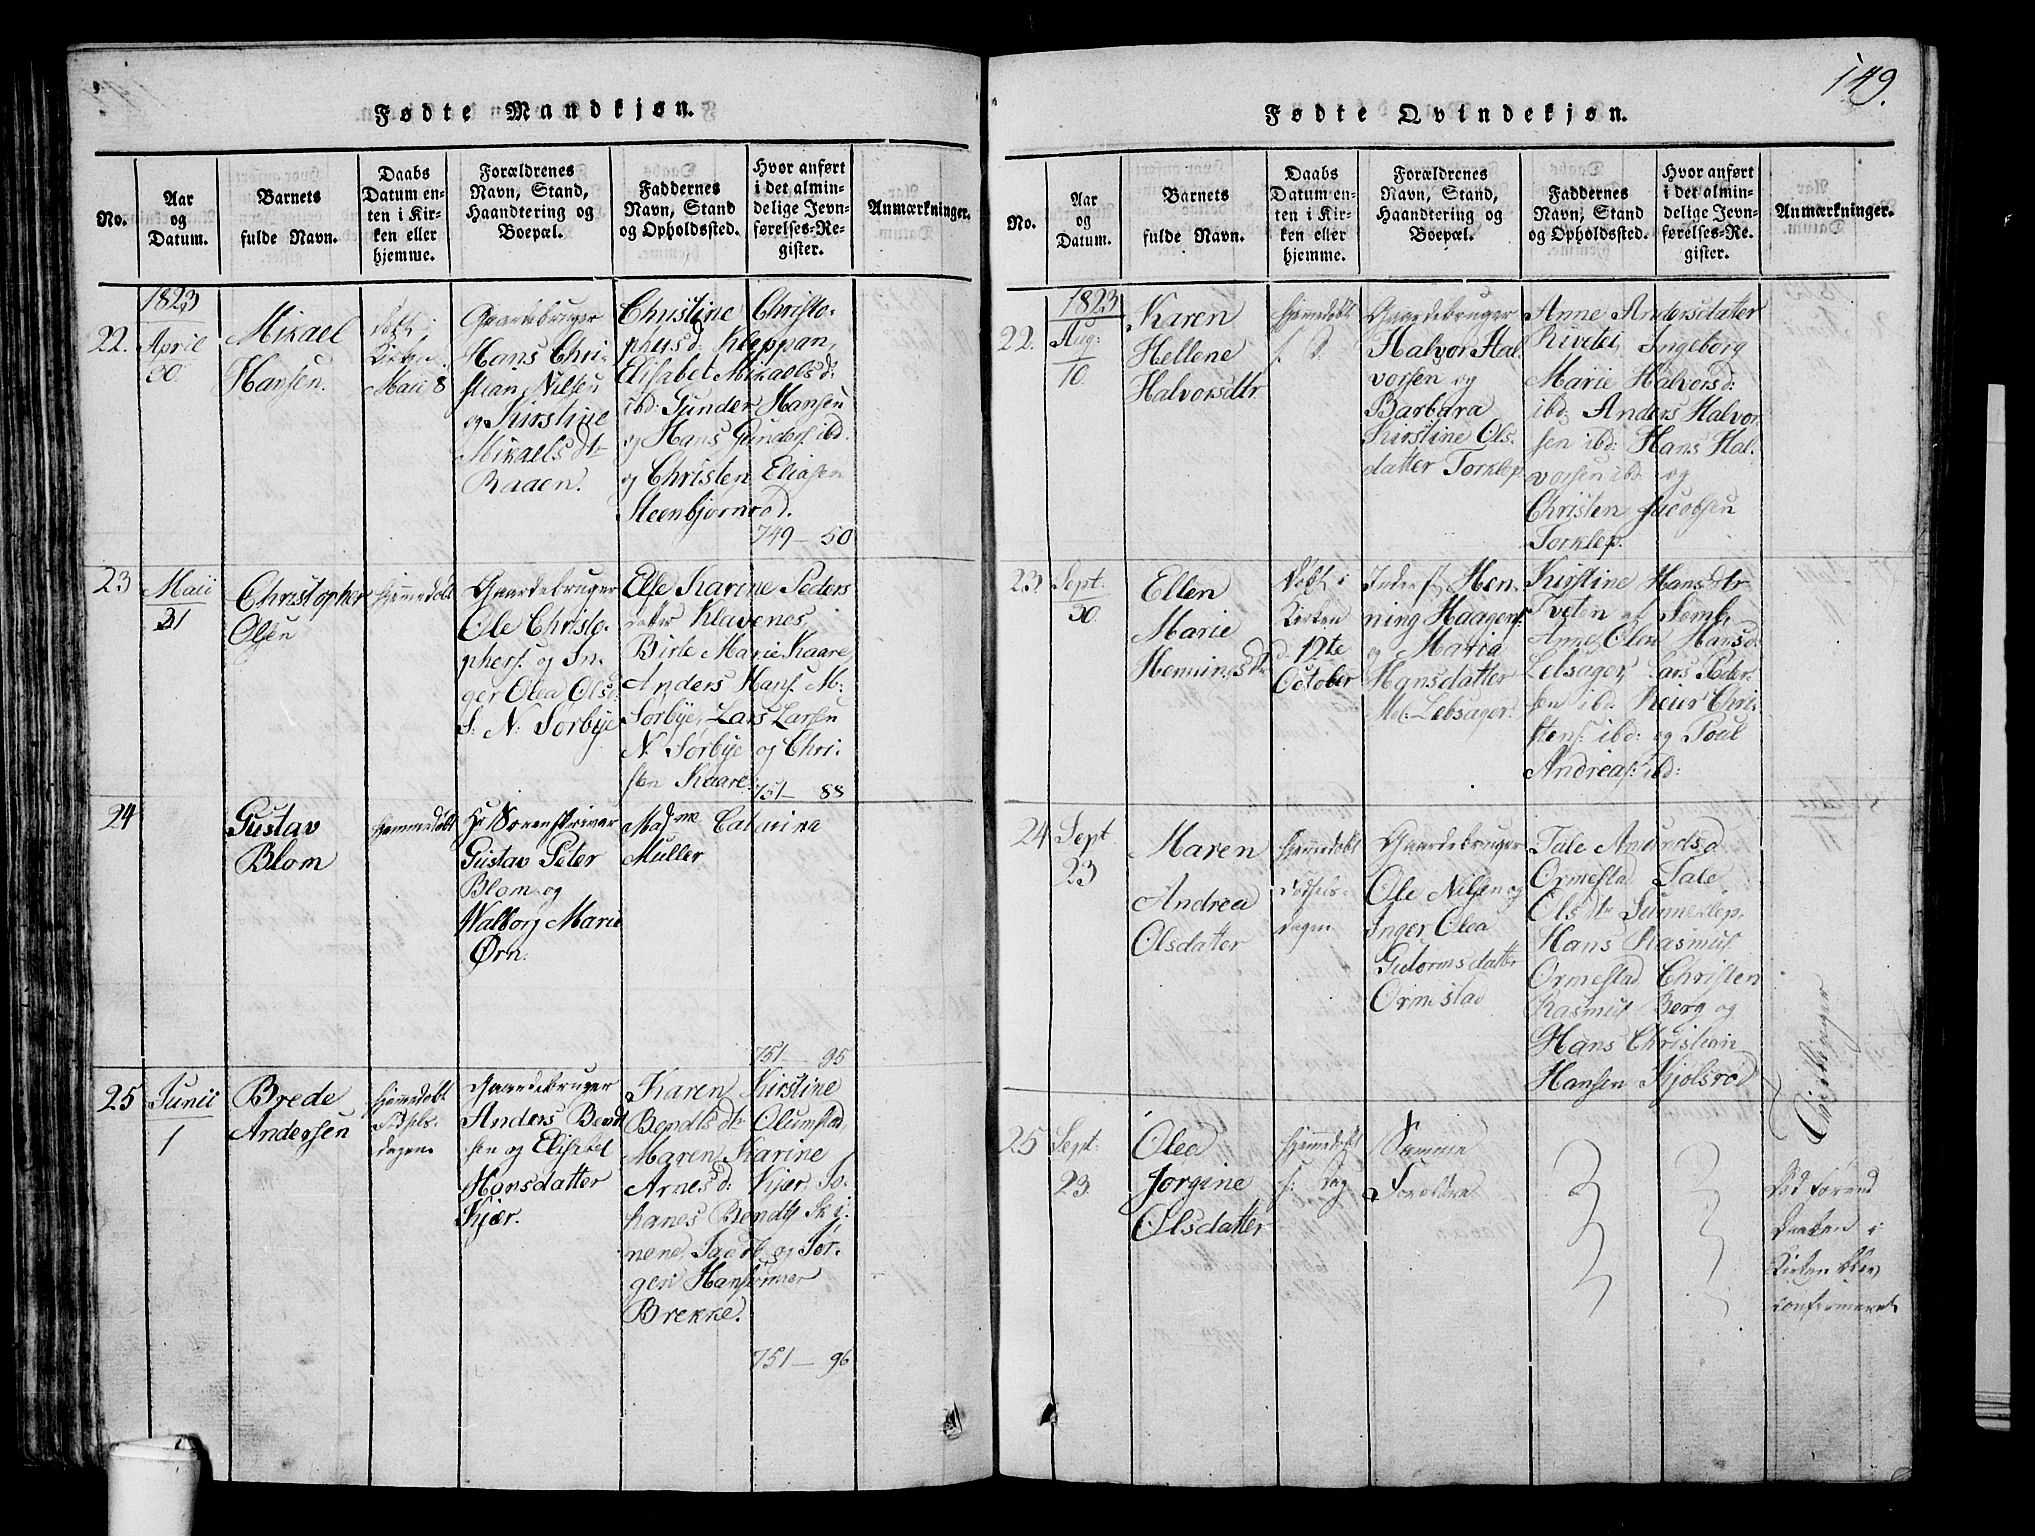 Fødte Mandkjøn.
No.
Aar
og
Datum.
Barnets
fulde Navn.
Daabs
Datum en-
ten i Kir-
ken eller
hjemme.
Forældrenes
Navn, Stand,
Haandtering og
Boepæl.
Faddernes
Navn, Stand
og Opholdssted.
Hvor anført
i det almin-
delige Jevn-
førelses-Re-
gister.
Anmærkninger.
22.
1823
April
30.
Mikael
Hansen.
Døbt i
Kirken
Maii 8
Gaardebruger
Hans Chri-
stian Nilsen
og Kirstine
Mikaelsdtr
Raaen.
Christine Christo-
phersd: Kleppan,
Elisabet Mikaelsd:
ibd: Gunder Hansen
og Hans Gunders: ibd.
og Christen Eliasen
Steenbjørnrød.
749 — 50
23
Maii
31
Christopher
Olsen
hjemmedøbt
Gaardebruger
Ole Christo-
phers: og In-
ger Olea Olsd:
S: N: Sørbye
Else Karine Peders
datter Klavenes,
Birte Marie Kaare
Anders Hans: M:
Sørbye, Lars Larsen
N: Sørbye og Chri-
sten Kaare:
751 — 88
24
Gustav
Blom
hjemmedøbt
Hr Sorenskriver
Gustav Peter
Blom og
Walborg Marie
Ørn.
Madme Catarina
Muller
751 — 95
25
Junii
1
Brede
Andersen
hjemmedøbt
Fødsels-
dagen
Gaardebruger
Anders Bendt
sen og Elisabet
Hansdatter
Kjær.
Karen Kirstine
Bendtsdtr Olumstad,
Maren Karine
Arnesd: Kjær, Jo-
hanes Bendts: Ski-
nene, Jacob og Jør-
gen
Brekke.
751 — 96
149.
Fødte Qvindekjøn.
No.
Aar
og
Datum.
Barnets
fulde Navn.
Daabs
Datum en-
ten i Kir-
ken eller
hjemme.
Forældrenes
Navn, Stand,
Haandtering og
Boepæl.
Faddernes
Navn, Stand
og Opholdssted.
Hvor anført
i det almin-
delige Jevn-
førelses-Re-
gister.
Anmærkninger.
22.
1823
Aug:
10.
Karen
Hellene
Halvorsdtr.
hjemmedøbt
f. D.
Gaardebruger
Halvor Hal-
vorsen og
Barbara
Kirstine Ols-
datter Torklep
Anne Andersdatter
Rivetei, Ingeborg
Marie Halvorsd:
ibd: Anders Halvor-
sen ibd: Hans Hal-
vorsen ibd: og
Christen Jacobsen
Torklep.
23.
Sept:
30.
Ellen
Marie
Henningsdtr
Døbt i
Kirken
d. 12te
October
Inderst Hen-
ning Haagens:
og Maria
Hansdatter
Mel: Lebsager.
Kirstine Hansdtr
Tveten af Semb,
Anne Olea Hansd:
Lebsager, Lars Peder-
sen ibd: Reier Chri-
stens: ibd: og Poul
Andreas: ibd:
24
Sept
23
Maren
Andrea
Olsdatter
hjemmedøbt
Fødsels-
dagen
Gaardebruger
Ole Nilsen og
Inger Olea
Gutormsdatter
Ormestad
Tale
Ormestad Tale
Olsdtr Sunneklep,
Hans Rasmus:
Ormestad Christen
Rasmus: Berg og
Hans Christian
Hansen Kjølsrød
Tvillinger
25
Sept:
23.
Olea
Jørgine
Olsdatter
hjemmedøbt
f: Dag
Samme
Forældre
Død forend
Daaben i
Kirken blev
confirmeret